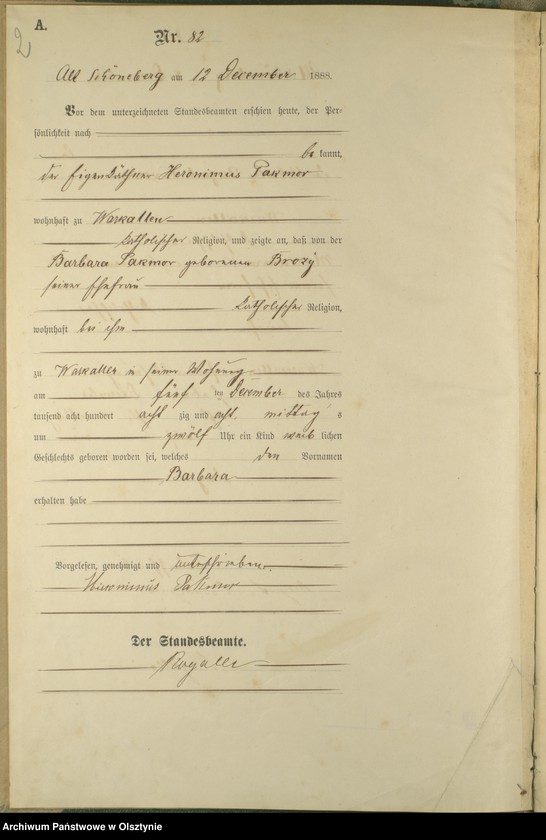 A.
2
Nr. 82
Alt Schöneberg am 12 December 1888.
Vor dem unterzeichneten Standesbeamten erschien heute, der Per-
sönlichkeit nach
be kannt,
der Eigenkäthner Heronimus Pakmor
wohnhaft zu Warkallen
katholischer Religion, und zeigte an, daß von der
Barbara Pakmor geborenen Brozy
seiner Ehefrau
katholischer Religion,
wohnhaft bei ihm
zu Warkallen in seiner Wohnung
am fünf ten December des Jahres
tausend acht hundert acht zig und acht mittag s
um zwölf Uhr ein Kind weib lichen
Geschlechts geboren worden sei, welches den Vornamen
Barbara
erhalten habe
Vorgelesen, genehmigt und unterschrieben.
Hieronimus Pakmor
Der Standesbeamte.
Royalla
Archiwum Państwowe w Olsztynie